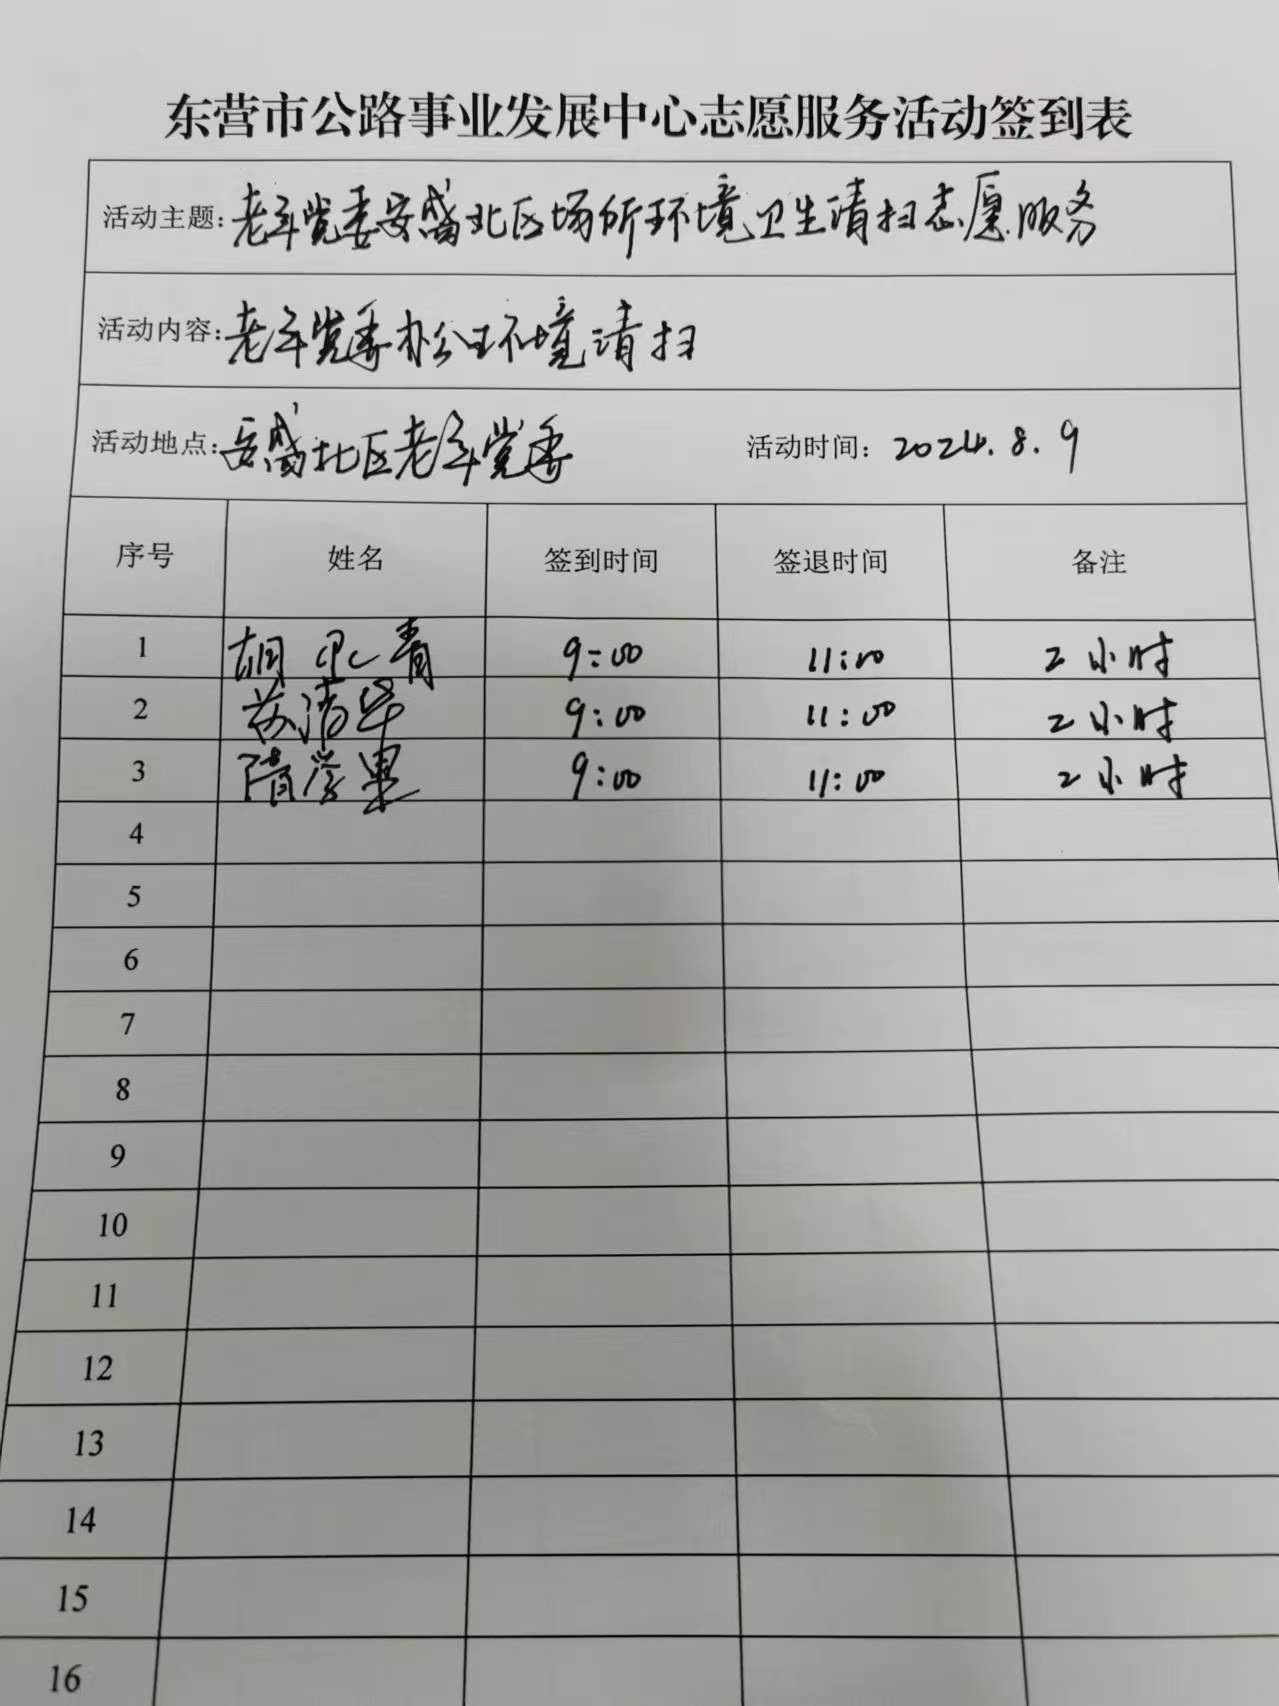 东营市公路事业发展中心志愿服务活动签到表
活动主题：老年党委安盛北区场所环境卫生清扫志愿服务
活动内容：老年党委办公环境清扫
活动地点：安盛北区老年党委 活动时间：2024.8.9
序号 姓名 签到时间 签退时间 备注
1 胡 青 9:00 11:00 2小时
2 苏清华 9:00 11:00 2小时
3 隋学果 9:00 11:00 2小时
4
5
6
7
8
9
10
11
12
13
14
15
16